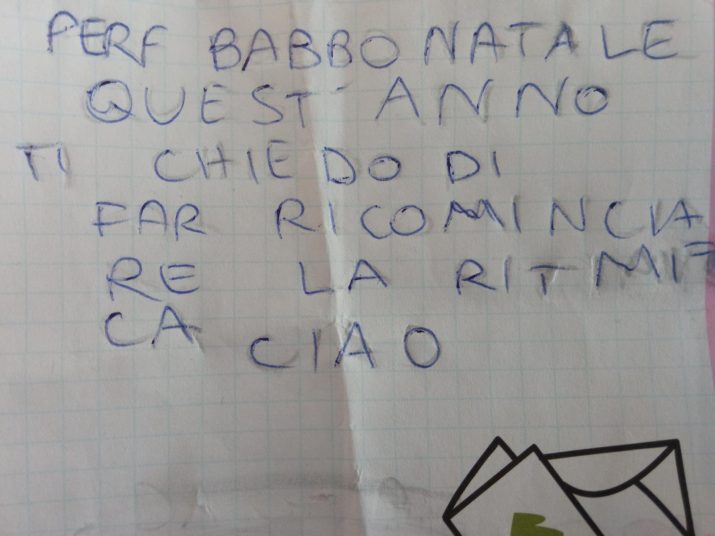 PERF BABBO NATALE
QUEST' ANNO
TI CHIEDO DI
FAR RICOMINCIA
RE LA RITMI
CA CIAO